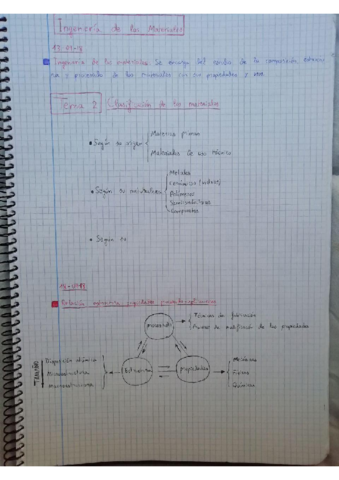 Ingeniería de los Materiales
Ingeniería de los materiales: Se encarga del estudio de la composición,
y procesado de los materiales con sus propiedades y uso.
Tema 2 Clasificación de los materiales
• Según su origen
Materias primas
Materiales de uso técnico
• Según su naturaleza
Metales
Cerámicos (vidrios)
Polímeros
Semiconductores
Compuestos
• Según
Relación estructura, propiedades
procesado
Técnicas de fabricación
Proceso de modificación de las propiedades
Disposición atómica
Microestructura
Macroestructura
Estructura
propiedades
Mecánicas
Físicas
Químicas